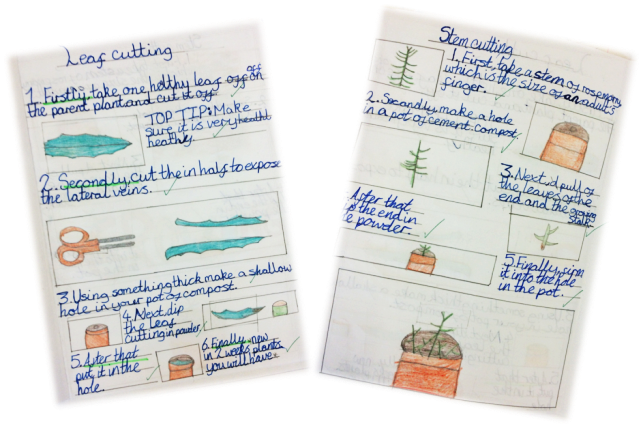 Leaf cutting
1. Firstly, take one helthy leaf off on
the parent plant and cut it off.
TOP TIP: Make
sure it is very
heathly.
2. Secondly, cut the in half to expose
the lateral veins.
3. Using something thick make a shallow
hole in your pot of compost.
4. Next dip
the leaf
cutting in powder.
5. After that
put it in the
hole.
6. Finally, new
in 2 weeks plants
you will have.
Stem cutting
1. First, take a stem of rosemary
which is the size of an adults
finger.
2. Secondly make a hole
in a pot of cement compost.
3. Next pull of
the leaves of the
end and the
After that
the end in
powder.
5. Finally,
it into the hole
in the pot.